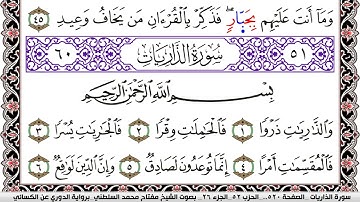 وَمَا أَنتَ عَلَيْهِم بِجَبَّارٍ فَذَكِّرْ بِالْقُرْءَانِ مَن يَخَافُ وَعِيدِ ٤٥
٥١ سُورَةُ الذَّارِيَاتِ ٦٠
بِسْمِ اللَّهِ الرَّحْمَٰنِ الرَّحِيمِ
وَالذَّٰرِيَٰتِ ذَرْوًا ١ فَالْحَٰمِلَٰتِ وِقْرًا ٢ فَالْجَٰرِيَٰتِ يُسْرًا ٣
فَالْمُقَسِّمَٰتِ أَمْرًا ٤ إِنَّمَا تُوعَدُونَ لَصَادِقٌ ٥ وَإِنَّ الدِّينَ لَوَٰقِعٌ ٦
سورة الذاريات ..الصفحة ٥٢٠.. الحزب ٥٢ الجزء ٢٦ ..بصوت الشيخ مفتاح محمد السلطني ..برواية الدوري عن الكسائي